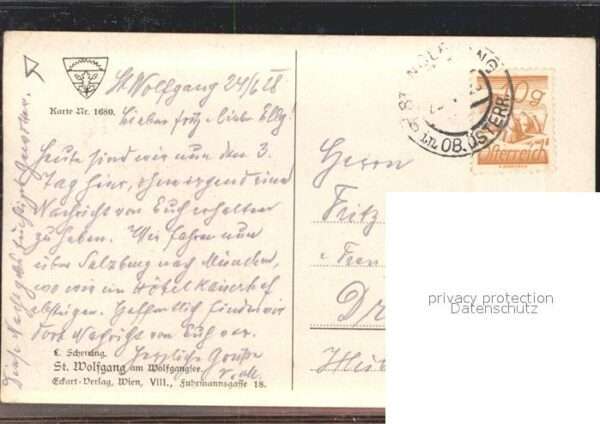 Karte Nr. 1680.
St. Wolfgang 24/6 28
Lieber Fritz, liebe Elly!
Heute sind wir nun den 3.
Tag hier, ohne irgend eine
Nachricht von Euch erhalten
zu haben. Wir fahren nun
über Salzburg nach München,
wo wir im Hotel Kaiserhof
absteigen. Hoffentlich finden wir
dort Nachricht von Euch vor.
Herzliche Grüße
L. Scheuing.
St. Wolfgang am Wolfgangsee.
Eckart-Verlag, Wien, VIII., Fuhrmannsgasse 18.
ST. WOLFGANG
in OB. ÖSTERR.
10 g
Österreich
Herrn
Fritz
Dr
privacy protection
Datenschutz